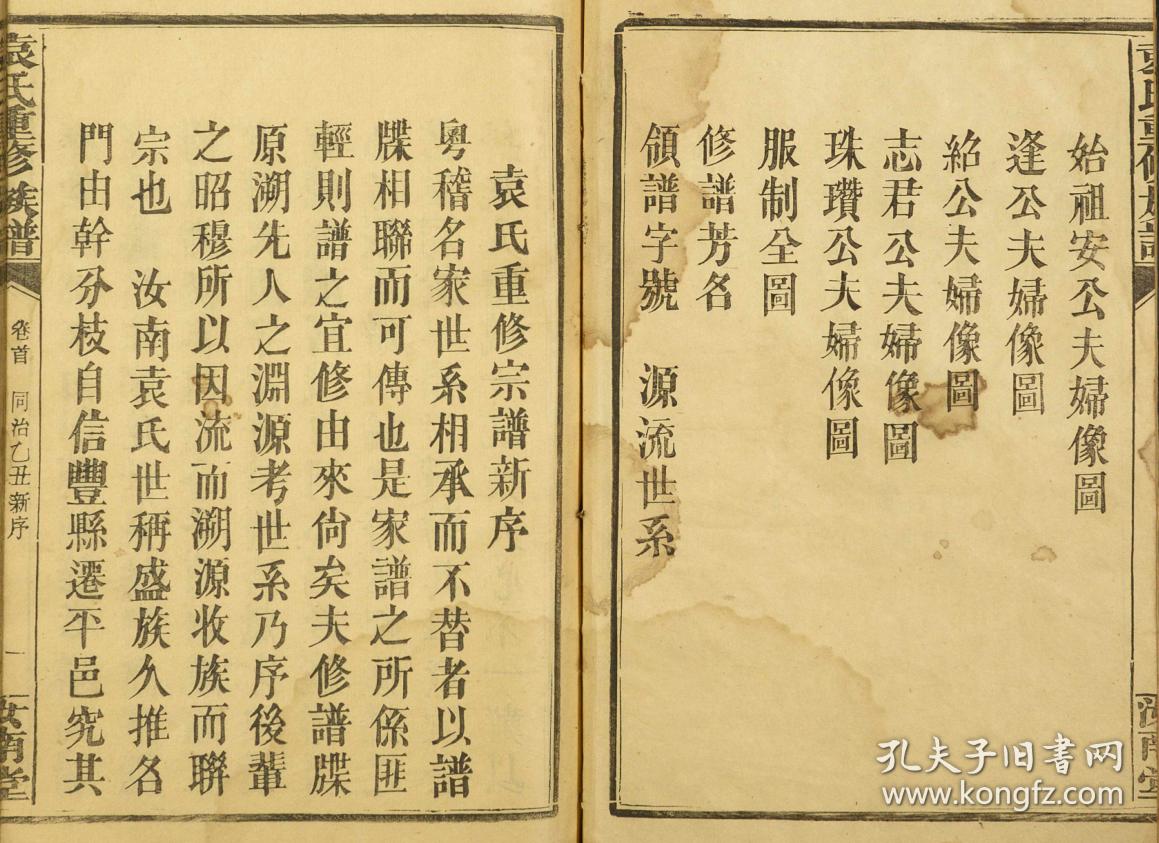 袁氏重修族譜
始祖安公夫婦像圖
逢公夫婦像圖
紹公夫婦像圖
志君公夫婦像圖
珠瓚公夫婦像圖
服制全圖
修譜芳名
領譜字號 源流世系
汝南堂
袁氏重修宗譜新序
粵稽名家世系相承而不替者以譜
牒相聯而可傳也是家譜之所係匪
輕則譜之宜修由來尙矣夫修譜牒
原溯先人之淵源考世系乃序後輩
之昭穆所以因流而溯源收族而聯
宗也 汝南袁氏世稱盛族久推名
門由幹分枝自信豐縣遷平邑究其
袁氏重修族譜
卷首 同治乙丑新序
一
汝南堂
孔夫子旧书网
www.kongfz.com